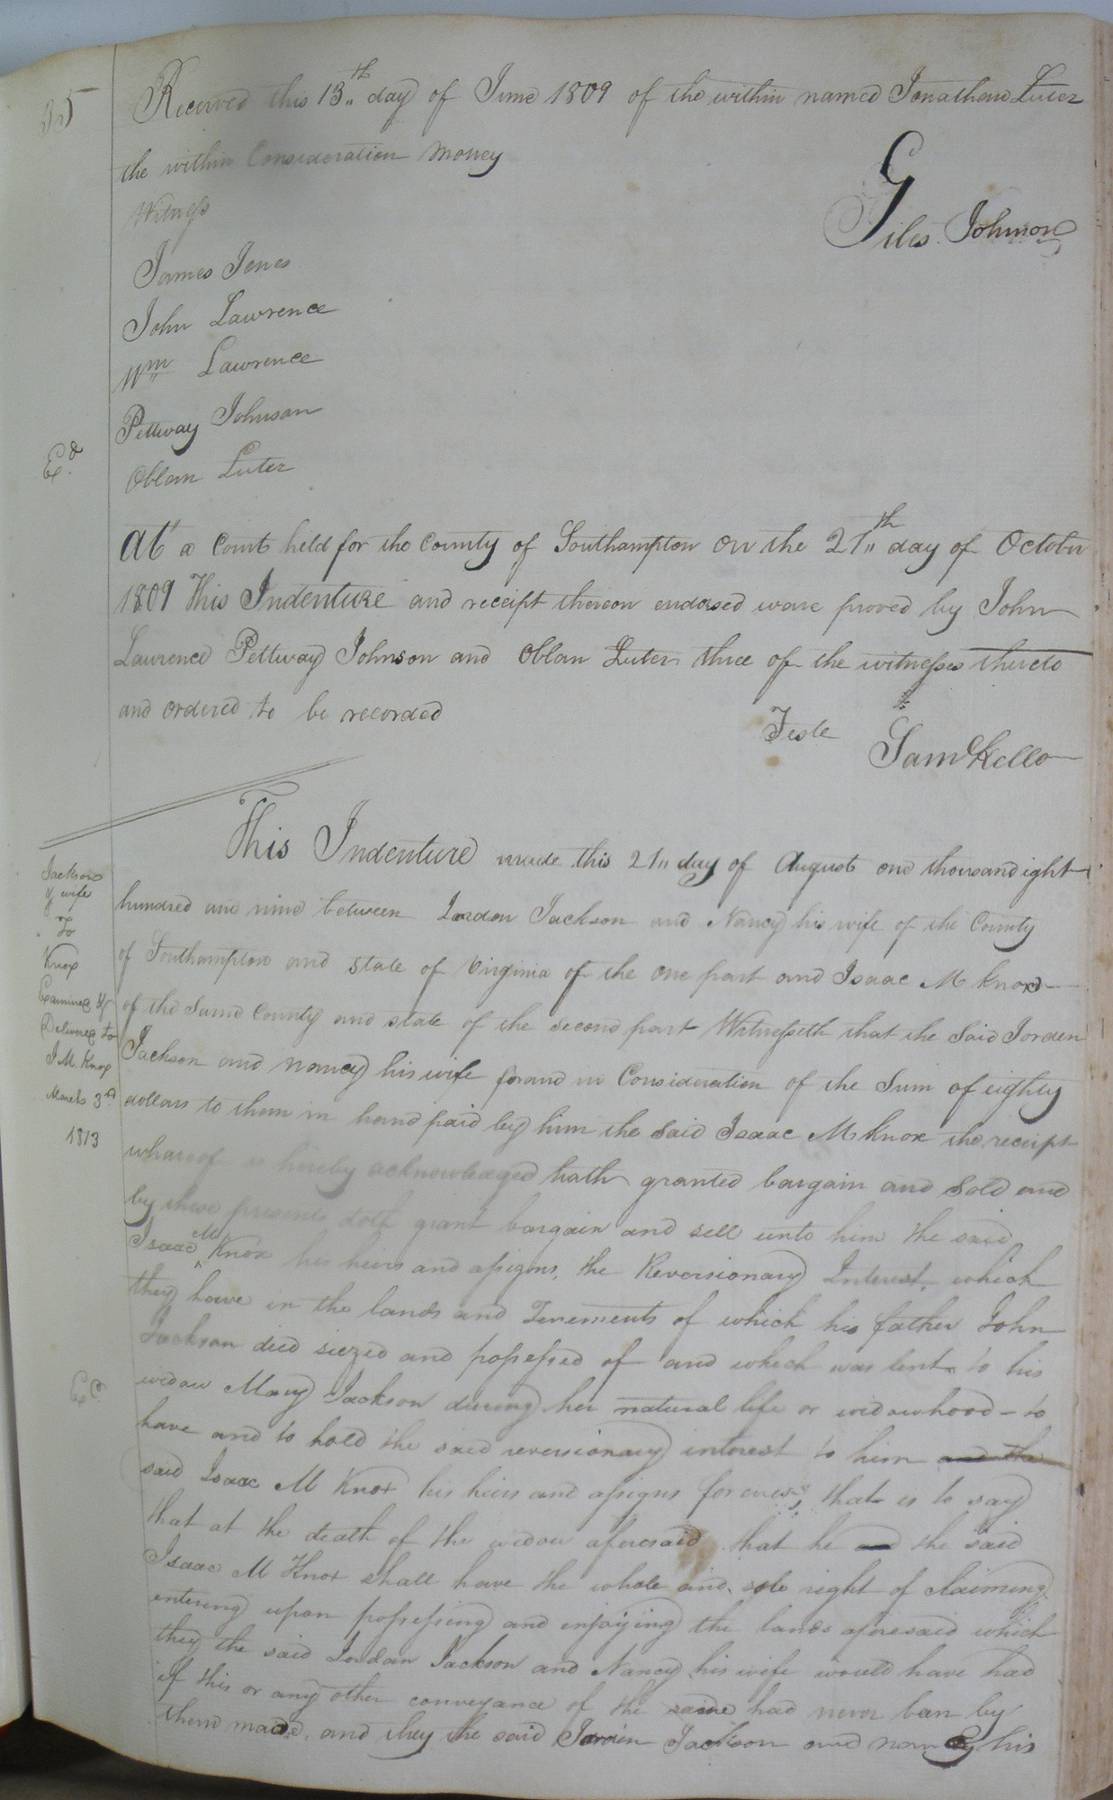 35
Received this 13th day of June 1809 of the within named Jonathan Luter
the within Consideration Money
Witness
Giles Johnson
James Jones
John Lawrence
Wm Lawrence
Pettway Johnson
Exd
Oblan Luter
At a Court held for the County of Southampton on the 21th day of October
1809 This Indenture and receipt thereon endorsed ware proved by John
Lawrence Pettway Johnson and Oblan Luter three of the witnesses thereto
and ordered to be recorded
Teste Saml Kello
This Indenture made this 21 day of August one thousand eight
hundred and nine between Jordon Jackson and Nancy his wife of the County
of Southampton and State of Virginia of the one part and Isaac M Knox
of the Same County and state of the second part Witnesseth that the Said Jorden
Jackson and Nancy his wife for and in Consideration of the Sum of eighty
dollars to them in hand paid by him the Said Isaac M Knox the receipt
whareof is hereby acknowledged hath granted bargain and Sold and
by these presents doth grant bargain and sell unto him the said
Isaac M Knox his heirs and assigns, the Reversionary Interest, which
they have in the lands and Tenements of which his father John
Jackson died siezed and possessed of and which was lent to his
widow Mary Jackson during her natural life or widowhood - to
have and to hold the said reversionary interest to him and the
said Isaac M Knox his heirs and assigns forever, that is to say
that at the death of the widow aforesaid that he the said
Isaac M Knox shall have the whole and sole right of claiming
entering upon possessing and enjoying the lands aforesaid which
they the said Jordan Jackson and Nancy his wife would have had
if this or any other conveyance of the same had never ban by
them made, and they the said Jorden Jackson and Nancy his
Jackson
& wife
To
Knox
Examined &
Delivered to
I M. Knox
March 3rd
1813
Exd